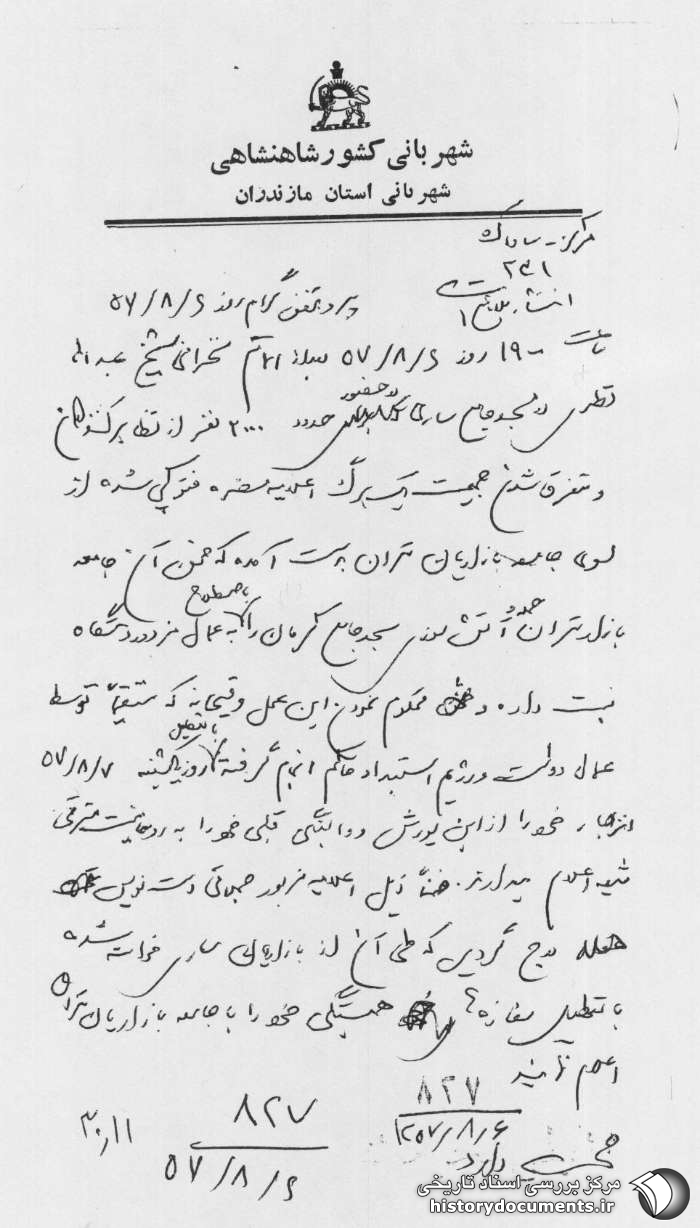 شهربانی کشور شاهنشاهی
شهربانی استان مازندران
مرکز - ساواک
۲۳۱
انتشار
پیرو تلفنگرام روز ۵۷/۸/۶
ساعت ۱۹۰۰ روز ۵۷/۸/۶ بعد از اتمام سخنرانی شیخ عبداله
نظری در مسجد جامع ساری در حضور حدود ۲۰۰۰ نفر از تظاهرکنندگان
و متفرق شدن جمعیت یک برگ اعلامیه فتوکپی شده از
سوی جامعه بازاریان تهران بدست آمده که ضمن آن جامعه
بازار تهران آتش سوزی مسجد جامع کرمان را باصطلاح به عمال مزدور دستگاه
نسبت داده و محکوم نمودن این عمل وقیحانه که مستقیماً توسط
عمال دولت و رژیم استبداد حاکم انجام گرفته با تعطیل روز یکشنبه ۵۷/۸/۷
انزجار خود را از این یورش و وابستگی قلبی خود را به روحانیت مترقی
شیعه اعلام میدارند. ضمناً ذیل اعلامیه مزبور جملاتی دست نویس
درج گردیده که طی آن از بازاریان ساری خواسته شده
با تعطیل مغازه‌ها همبستگی خود را با جامعه بازاریان تهران
اعلام نمایند
۸۲۷
۵۷/۸/۶
۸۲۷
۲۵۷/۸/۶
۲۰،۱۱
مرکز بررسی اسناد تاریخی
historydocuments.ir